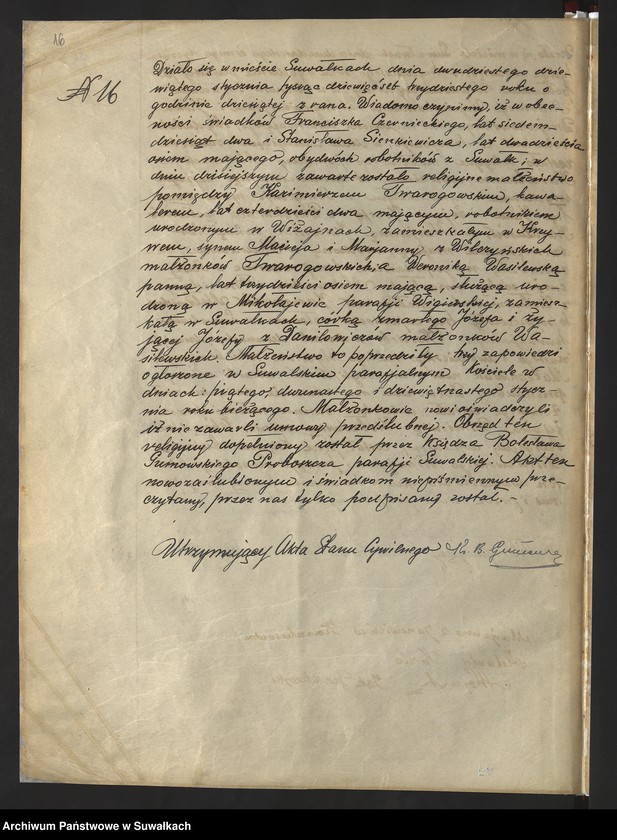 16
№ 16
Działo się w mieście Suwałkach dnia dwudziestego dzie-
wiątego stycznia tysiąc dziewięćset trzydziestego roku o
godzinie dziesiątej z rana. Wiadomo czynimy, iż w obec-
ności świadków Franciszka Czernieckiego, lat siedem-
dziesiąt dwa i Stanisława Sienkiewicza, lat dwadzieścia
osiem mającego, obydwóch robotników z Suwałk; w
dniu dzisiejszym zawarte zostało religijne małżeństwo
pomiędzy Kazimierzem Twarogowskim, kawa-
lerem, lat czterdzieści dwa mającym, robotnikiem
urodzonym w Wiżajnach, zamieszkałym w Krzy-
wem, synem Macieja i Marjanny z Wilczyńskich
małżonków Twarogowskich, a Weroniką Wasilewską
panną, lat trzydzieści osiem mającą, służącą uro-
dzoną w Mikołajewie parafji Wigierskiej, zamiesz-
kałą w Suwałkach, córką zmarłego Józefa i ży-
jącej Józefy z Daniłowiczów małżonków Wa-
silewskich. Małżeństwo to poprzedziły trzy zapowiedzi
ogłoszone w Suwalskim parafjalnym Kościele w
dniach: piątego, dwunastego i dziewiętnastego stycz-
nia roku bieżącego. Małżonkowie nowi oświadczyli
iż nie zawarli umowy przedślubnej. Obrzęd ten
religijny dopełniony został przez Księdza Bolesława
Gumowskiego Proboszcza parafji Suwalskiej. Akt ten
nowozaślubionym i świadkom niepiśmiennym prze-
czytany, przez nas tylko podpisany został. -
Utrzymujący Akta Stanu Cywilnego Ks. B.
Archiwum Państwowe w Suwałkach